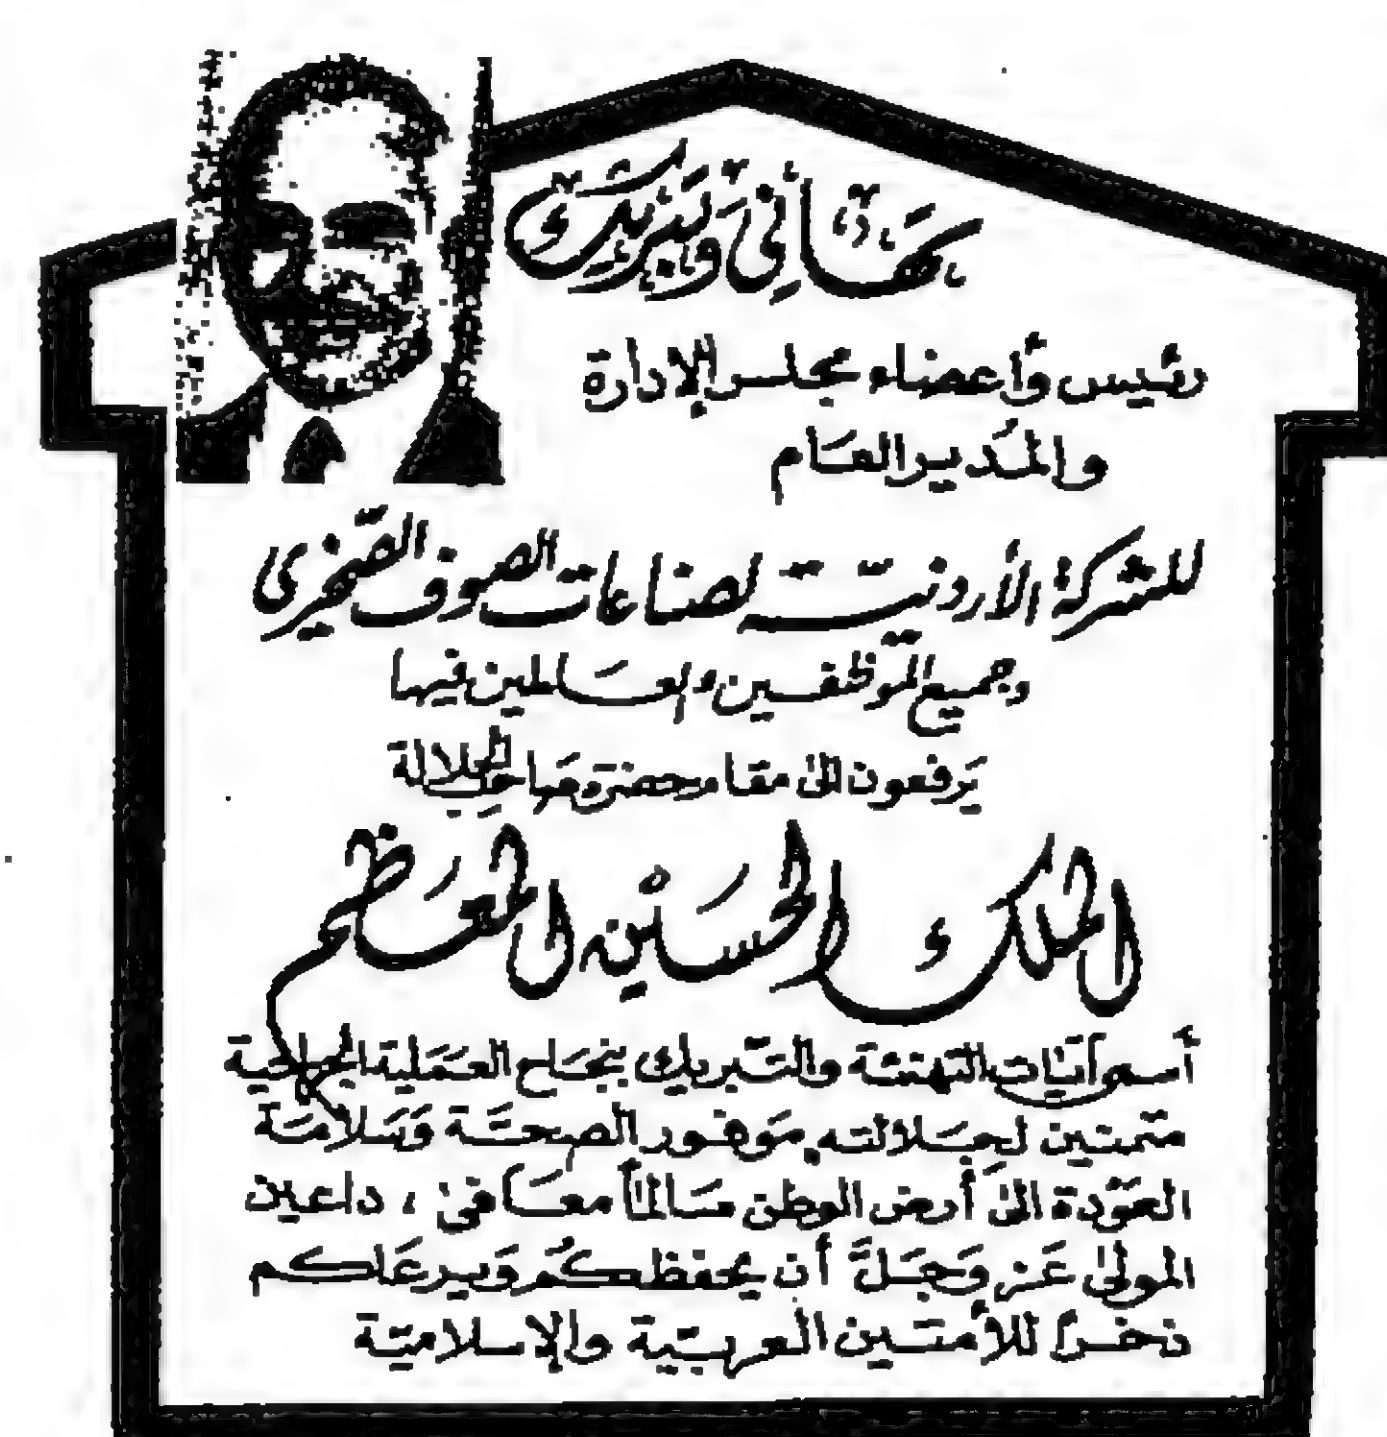 تهاني وتبريك
رئيس وأعضاء مجلس الإدارة
والمدير العام
للشركة الأردنية لصناعات الصوف الصخري
وجميع الموظفين والعاملين فيها
يرفعون الى مقام حضرة صاحب الجلالة
الملك الحسين المعظم
أسمى آيات التهنئة والتبريك بنجاح العملية الجراحية
متمنين لجلالته موفور الصحة وسلامة
العودة الى أرض الوطن سالماً معافى ، داعين
المولى عز وجلَّ أن يحفظكم ويرعاكم
ذخراً للأمتين العربية والإسلامية